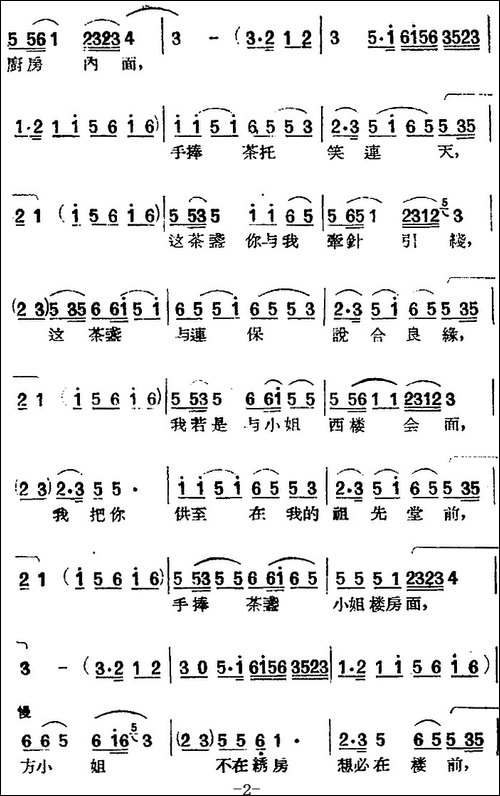 5 561 2323 4 3 - (3·2 1 2 3 5·1 6156 3523
廚房 內面,
1·2 1 1 5 6 1 6) 1 1 5 1 6 5 5 3 2·3 5 1 6 5 5 35
手捧 茶托 笑連 天,
2 1 (1 5 6 1 6) 5 53 5 1 1 6 5 5 65 1 2312 5 3
这茶盞 你与我 牽針 引綫,
(2 3) 5 35 6 61 5 1 6 5 5 1 6 5 5 3 2·3 5 1 6 5 5 35
这 茶盞 与連 保 說合良緣,
2 1 (1 5 6 1 6) 5 53 5 6 61 5 5 5 561 1 2312 3
我若是 与小姐 西楼 会面,
(2 3) 2·3 5 5· 1 1 5 1 6 5 5 3 2·3 5 1 6 5 5 35
我 把你 供至 在 我的 祖先堂前,
2 1 (1 5 6 1 6) 5 53 5 5 6 61 6 5 5 5 5 1 2323 4
手捧 茶盞 小姐楼房面,
3 - (3·2 1 2 3 0 5·1 6156 3523 1·2 1 1 5 6 1 6)
慢
6 6 5 6 16 5 3 (2 3) 5 5 6 1· 2·3 5 5 6 5 5 35
方小 姐 不在綉房 想必在 楼 前,
-2-